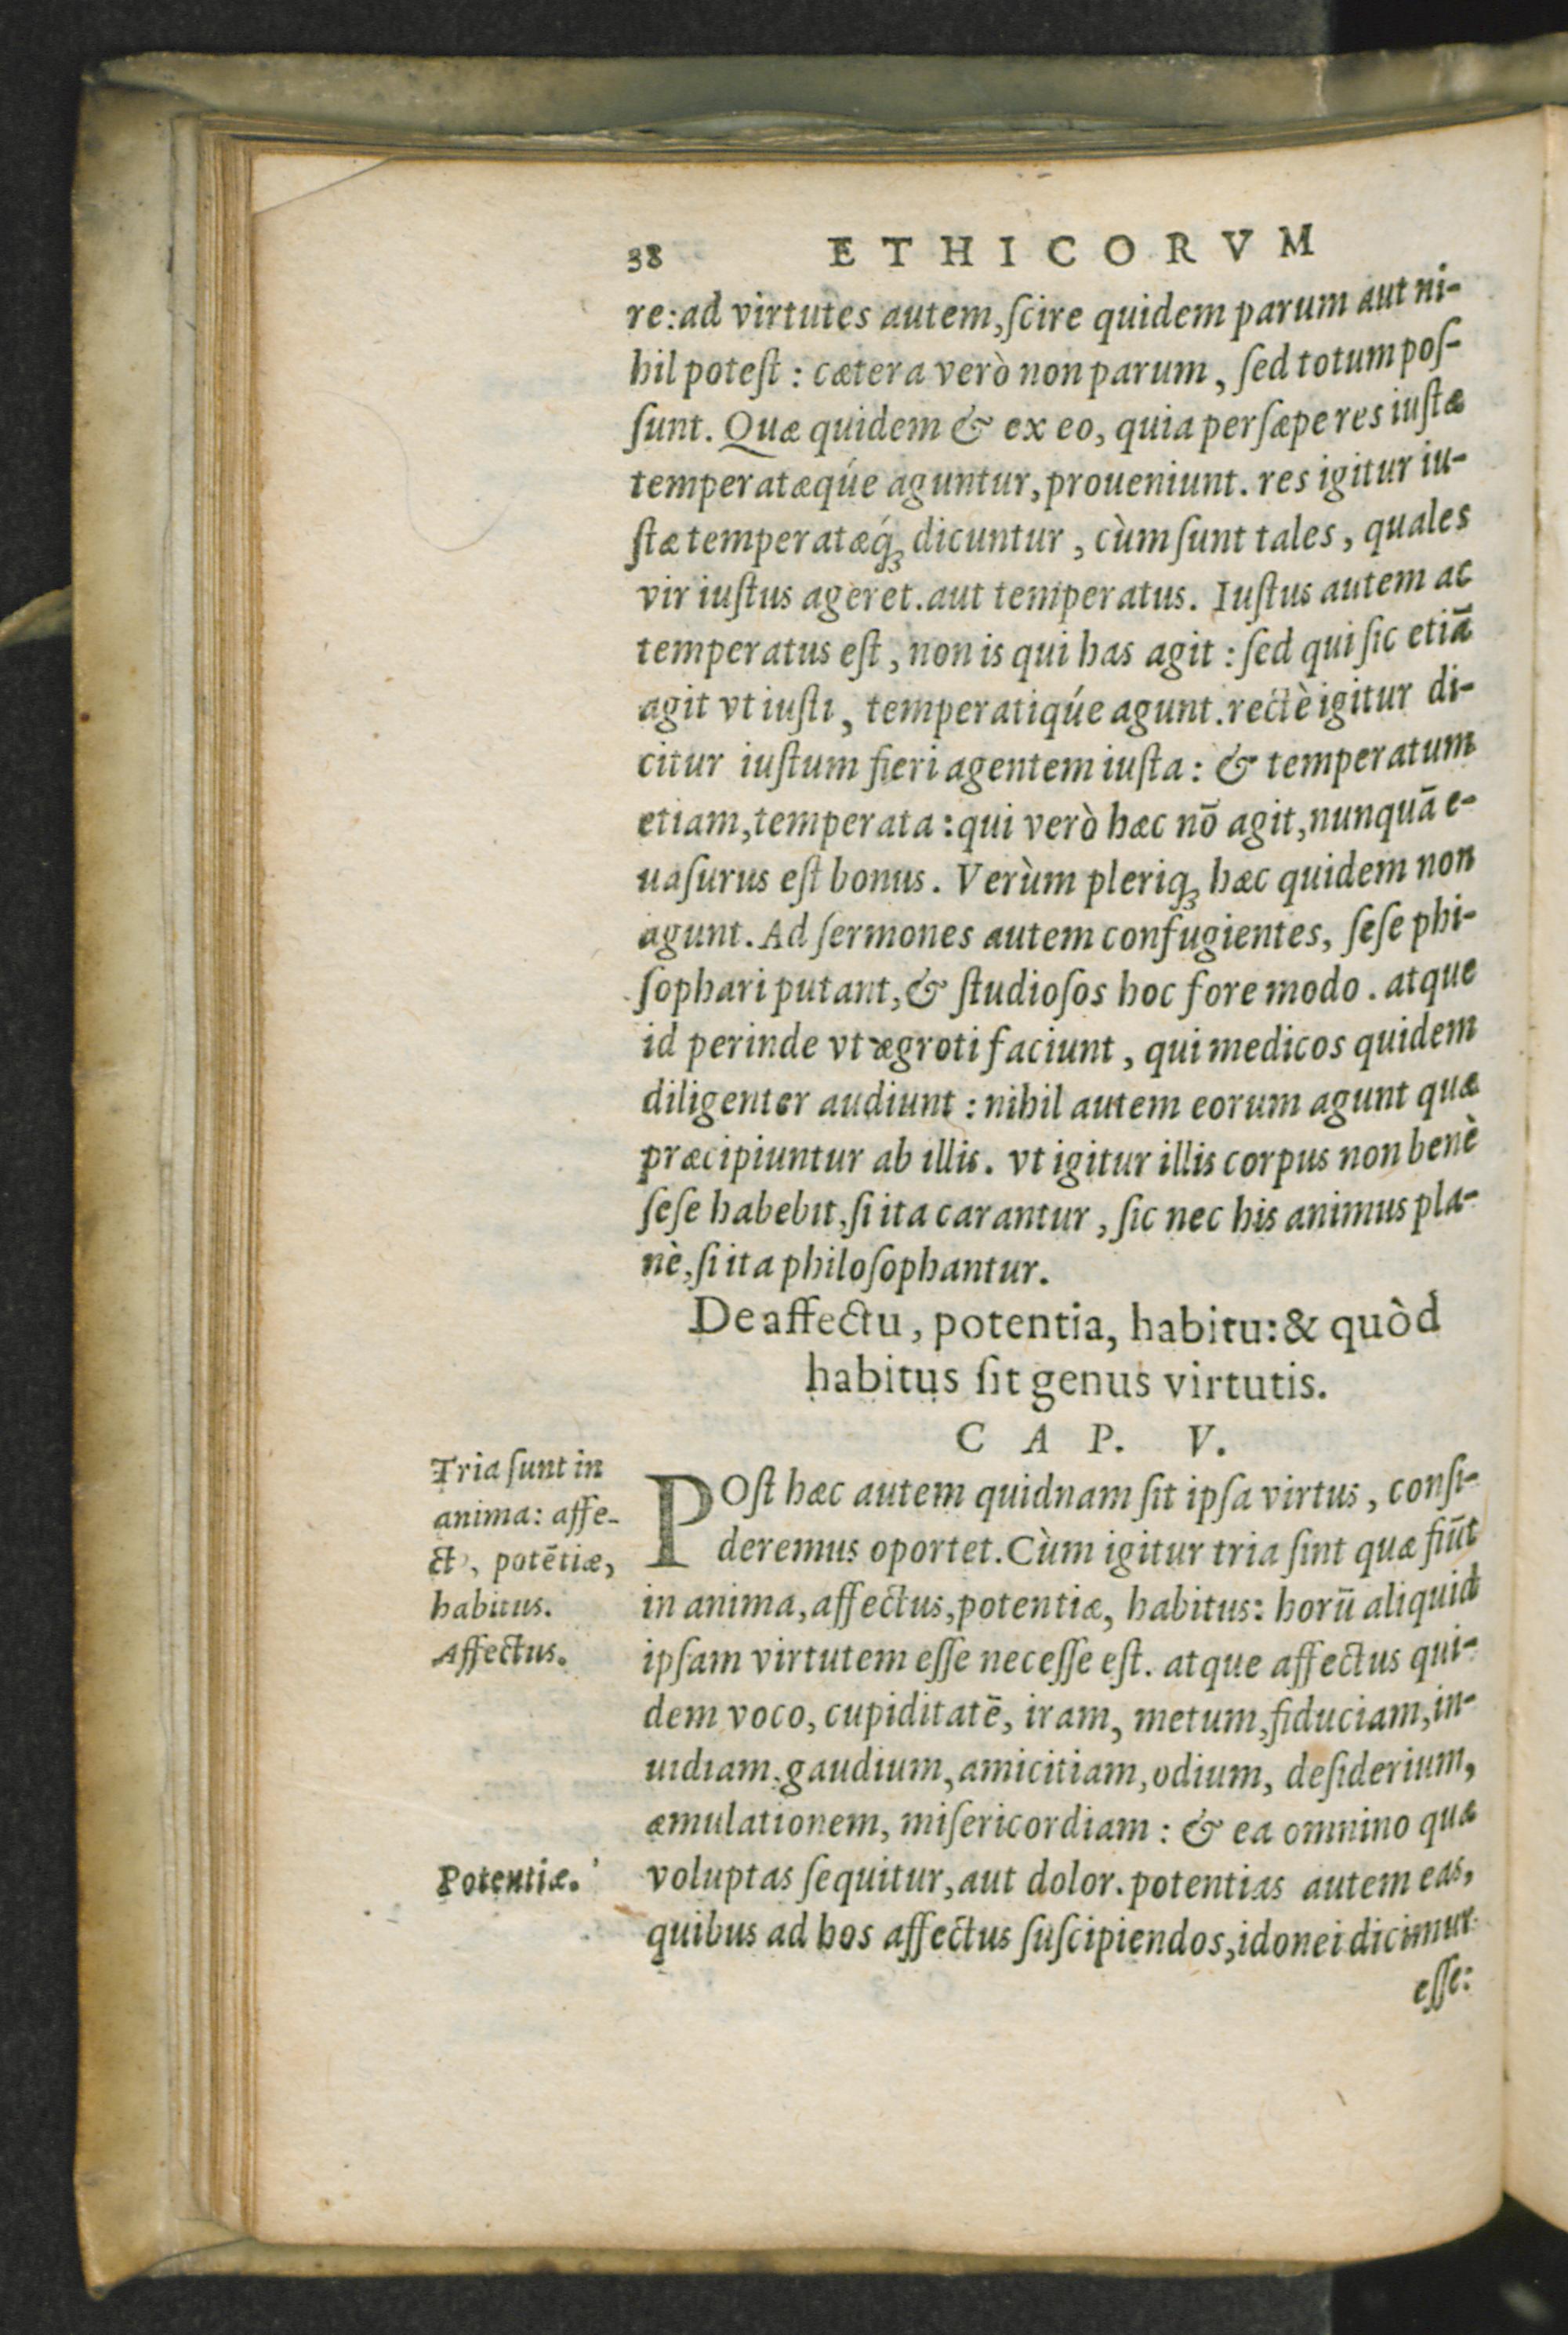 38 ETHICORVM
re: ad virtutes autem, ſcire quidem parum aut ni-
hil poteſt: cætera verò non parum, ſed totum poſ-
ſunt. Quæ quidem & ex eo, quia perſæpe res iuſtæ
temperatæqúe aguntur, proueniunt. res igitur iu-
ſtæ temperatæq́ꝫ dicuntur, cùm ſunt tales, quales
vir iuſtus ageret. aut temperatus. Iuſtus autem ac
temperatus eſt, non is qui has agit: ſed qui ſic etiã
agit vt iuſti, temperatiqúe agunt. rectè igitur di-
citur iuſtum fieri agentem iuſta: & temperatum
etiam, temperata: qui verò hæc nõ agit, nunquã e-
uaſurus eſt bonus. Verùm pleriqꝫ hæc quidem non
agunt. Ad ſermones autem confugientes, ſeſe phi-
ſophari putant, & ſtudioſos hoc fore modo. atque
id perinde vt ægroti faciunt, qui medicos quidem
diligenter audiunt: nihil autem eorum agunt quæ
præcipiuntur ab illis. vt igitur illis corpus non benè
ſeſe habebit, ſi ita carantur, ſic nec his animus pla-
nè, ſi ita philoſophantur.
De affectu, potentia, habitu: & quòd
habitus ſit genus virtutis.
CAP. V.
Tria ſunt in
anima: affe-
ct⁹, potẽtiæ,
habitus.
Affectus.
POſt hæc autem quidnam ſit ipſa virtus, conſi-
deremus oportet. Cùm igitur tria ſint quæ fiũt
in anima, affectus, potentiæ, habitus: horũ aliquid
ipſam virtutem eſſe neceſſe eſt. atque affectus qui-
dem voco, cupiditatẽ, iram, metum, fiduciam, in-
uidiam, gaudium, amicitiam, odium, deſiderium,
æmulationem, miſericordiam: & ea omnino quæ
Potentiæ.
voluptas ſequitur, aut dolor. potentias autem eas,
quibus ad hos affectus ſuſcipiendos, idonei dicimur
eſſe: